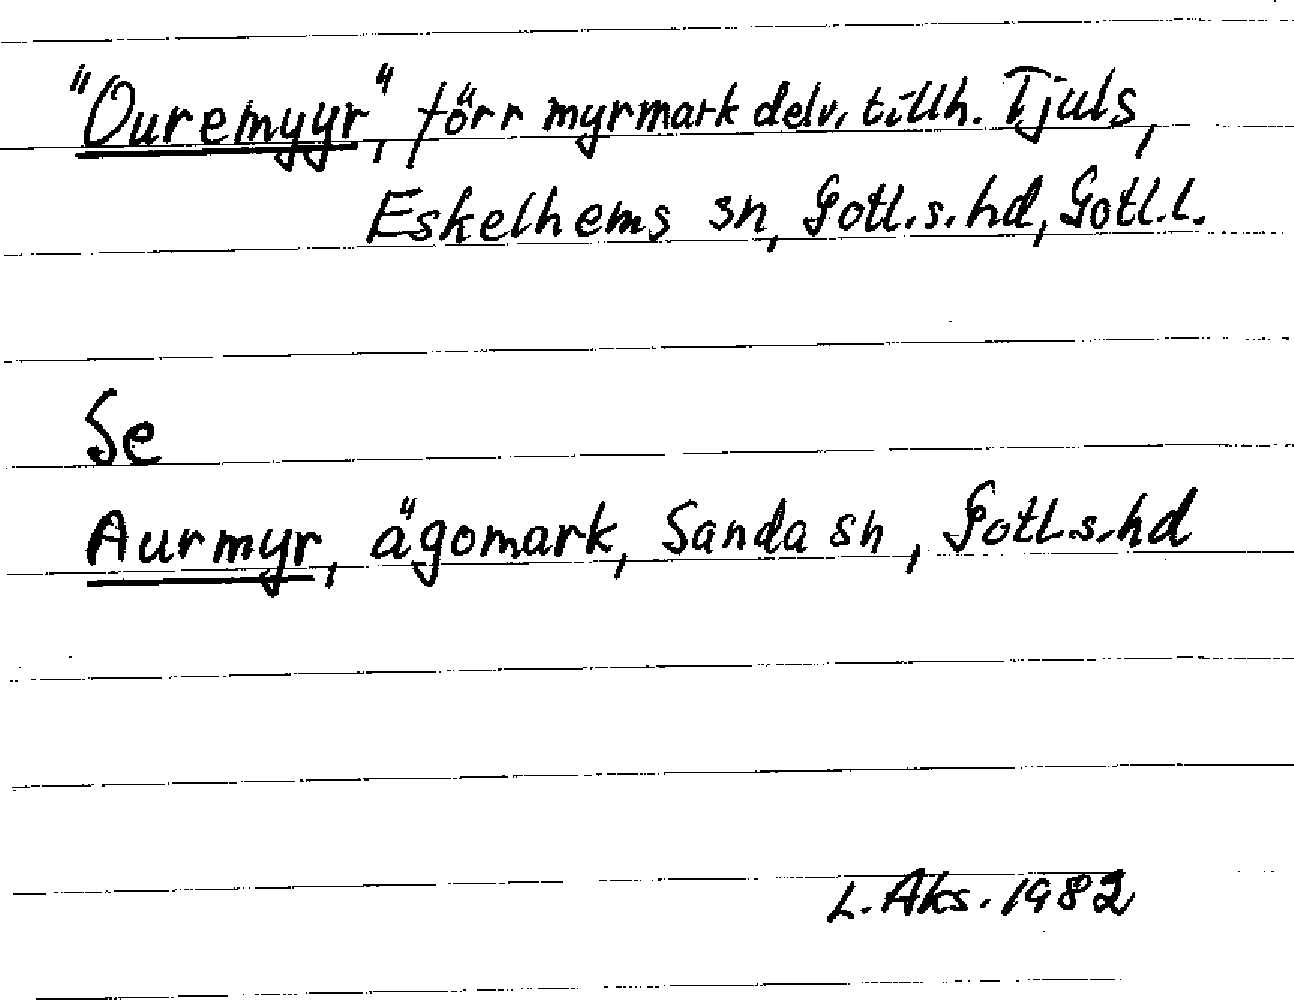 "Ouremyyr", förr myrmark delv. tillh. Tjuls,
Eskelhems sn, Gotl.s.hd, Gotl.l.
Se
Aurmyr, ägomark, Sanda sn, Gotl.s.hd
L. Aks. 1982